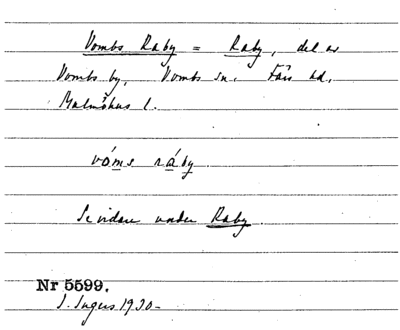 Vombs Raby = Raby, del av
Vombs by, Vombs sn. Färs hd,
Malmöhus l.
vóms ráby
Se vidare under Raby.
Nr 5599.
I. Ingers 1930